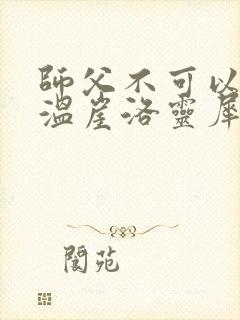 師父不可以
溫崖洛靈犀
閬苑